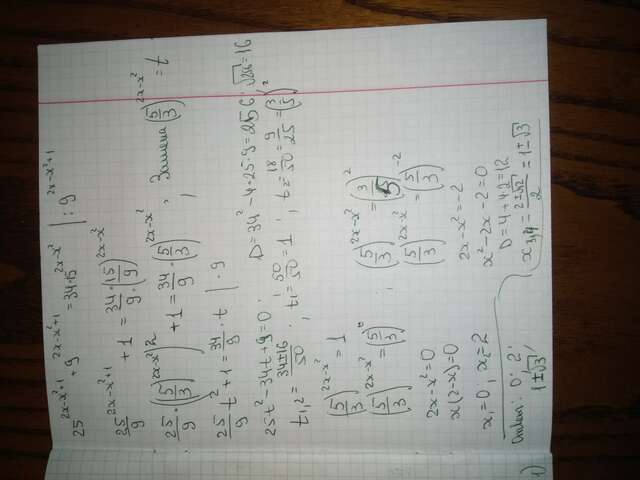 25^{2x-x²+1} + 9^{2x-x²+1} = 34·15^{2x-x²} | : 9^{2x-x²+1}
25/9^{2x-x²+1} + 1 = 34/9·(15/9)^{2x-x²}
25/9·((5/3)^{2x-x²})² + 1 = 34/9·(5/3)^{2x-x²}, Замена (5/3)^{2x-x²} = t
25/9 t² + 1 = 34/9·t | · 9
25t² - 34t + 9 = 0; D = 34² - 4·25·9 = 256; √256 = 16
t_{1,2} = 34±16/50; t₁ = 50/50 = 1; t₂ = 18/50 = 9/25 = (3/5)²
(5/3)^{2x-x²} = 1; (5/3)^{2x-x²} = (3/5)²
(5/3)^{2x-x²} = (5/3)⁰ (5/3)^{2x-x²} = (5/3)^{-2}
2x-x² = 0 2x-x² = -2
x(2-x) = 0 x²-2x-2 = 0
x₁ = 0; x₂ = 2 D = 4+4·2 = 12
x_{3,4} = 2±√12/2 = 1±√3
Ответ: 0; 2;
1±√3;
1)